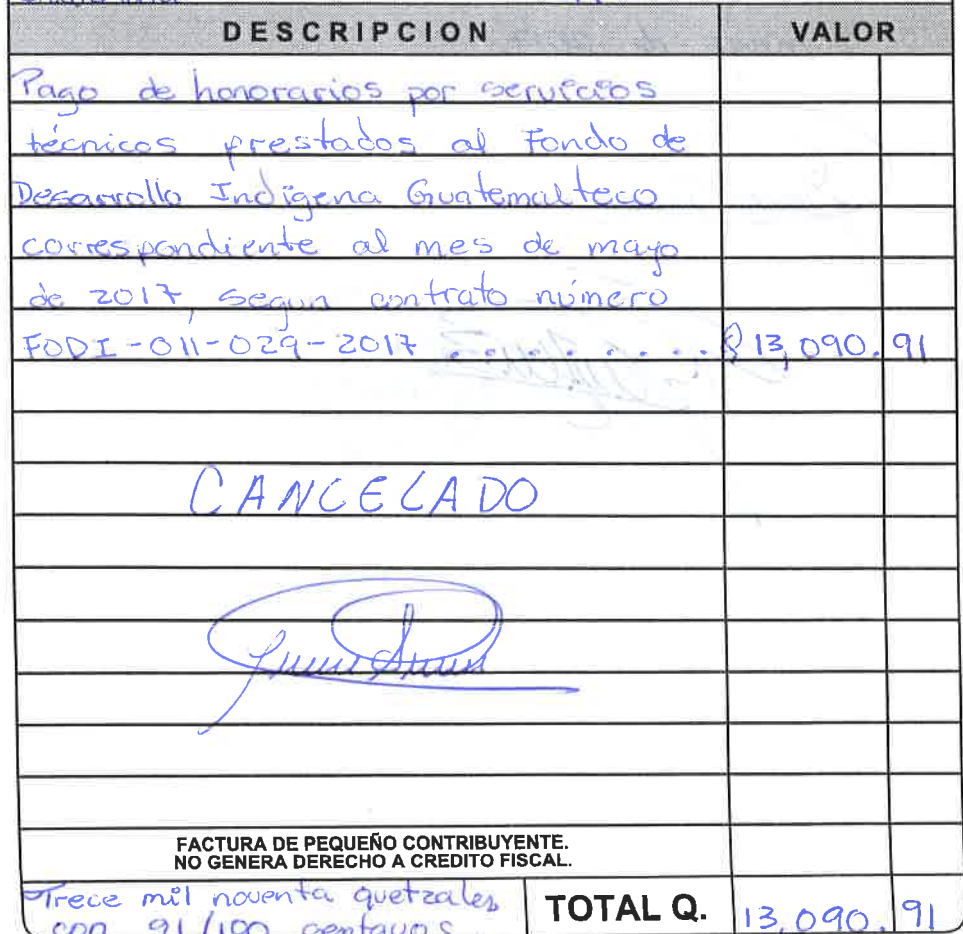 DESCRIPCION VALOR
Pago de honorarios por servicios
técnicos prestados al Fondo de
Desarrollo Indígena Guatemalteco
correspondiente al mes de mayo
de 2017, segun contrato número
FODI-011-029-2017 . . . . . . . . Q 13,090.91
CANCELADO
FACTURA DE PEQUEÑO CONTRIBUYENTE.
NO GENERA DERECHO A CREDITO FISCAL.
Trece mil noventa quetzales
con 91/100 centavos
TOTAL Q. 13,090.91